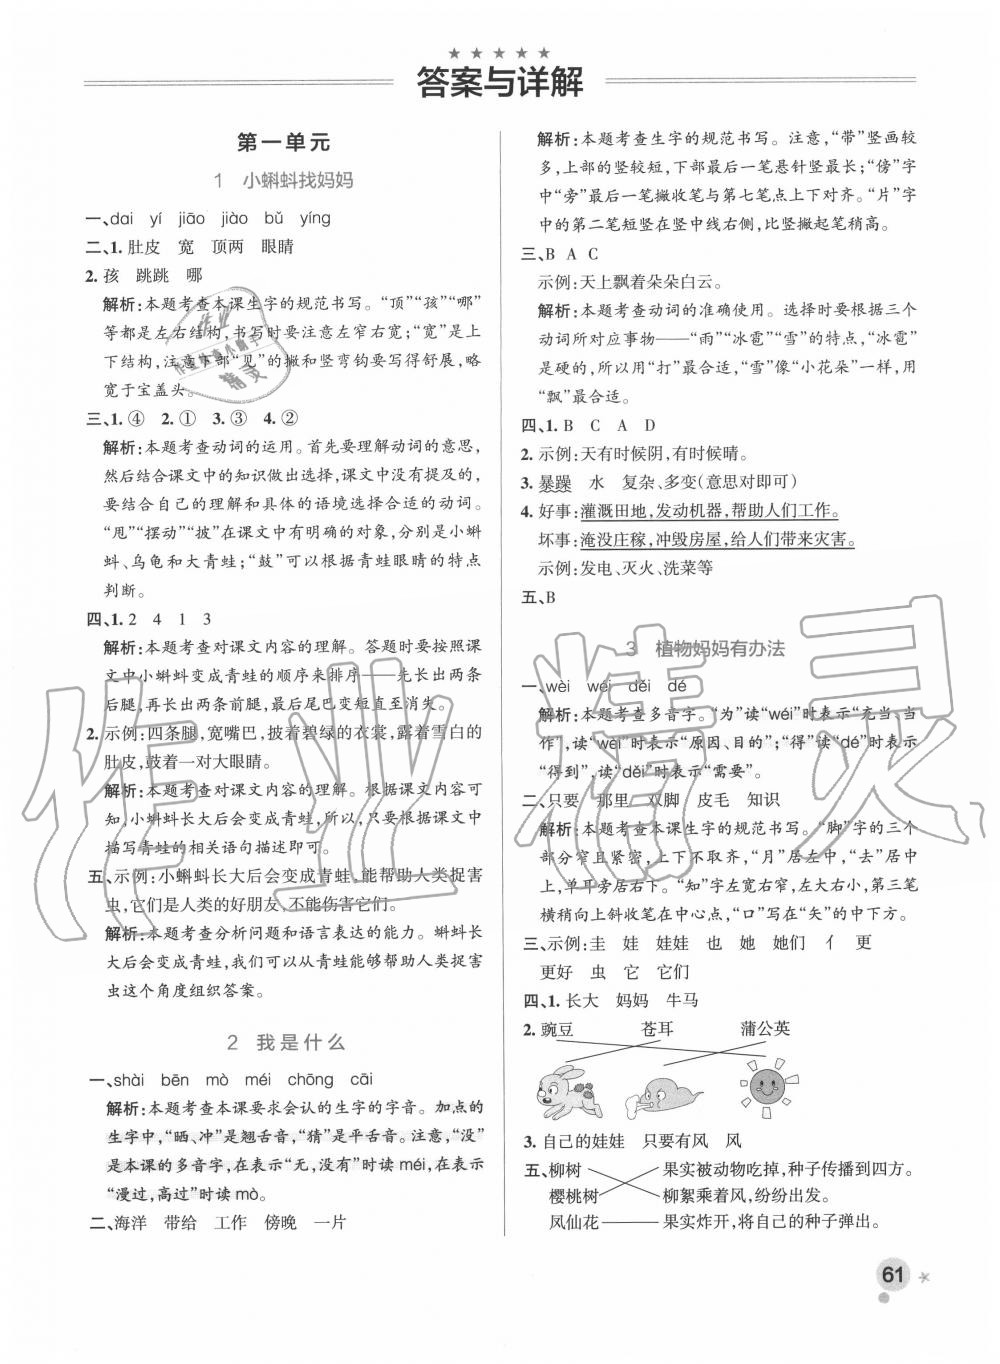 答案与详解
第一单元
1 小蝌蚪找妈妈
一、dai yí jiāo jiào bǔ yíng
二、1. 肚皮 宽 顶两 眼睛
2. 孩 跳跳 哪
解析:本题考查本课生字的规范书写。“顶”“孩”“哪”
等都是左右结构,书写时要注意左窄右宽;“宽”是上
下结构,注意下部“见”的撇和竖弯钩要写得舒展,略
宽于宝盖头。
三、1. ④ 2. ① 3. ③ 4. ②
解析:本题考查动词的运用。首先要理解动词的意思,
然后结合课文中的知识做出选择,课文中没有提及的,
要结合自己的理解和具体的语境选择合适的动词。
“甩”“摆动”“披”在课文中有明确的对象,分别是小蝌
蚪、乌龟和大青蛙;“鼓”可以根据青蛙眼睛的特点
判断。
四、1. 2 4 1 3
解析:本题考查对课文内容的理解。答题时要按照课
文中小蝌蚪变成青蛙的顺序来排序——先长出两条
后腿,再长出两条前腿,最后尾巴变短直至消失。
2. 示例:四条腿,宽嘴巴,披着碧绿的衣裳,露着雪白的
肚皮,鼓着一对大眼睛。
解析:本题考查对课文内容的理解。根据课文内容可
知,小蝌蚪长大后会变成青蛙,所以,只要根据课文中
描写青蛙的相关语句描述即可。
五、示例:小蝌蚪长大后会变成青蛙,能帮助人类捉害
虫,它们是人类的好朋友,不能伤害它们。
解析:本题考查分析问题和语言表达的能力。蝌蚪长
大后会变成青蛙,我们可以从青蛙能够帮助人类捉害
虫这个角度组织答案。
2 我是什么
一、shài bēn mò méi chōng cāi
解析:本题考查本课要求会认的生字的字音。加点的
生字中,“晒、冲”是翘舌音,“猜”是平舌音。注意,“没”
是本课的多音字,在表示“无,没有”时读 méi,在表示
“漫过,高过”时读 mò。
二、海洋 带给 工作 傍晚 一片
解析:本题考查生字的规范书写。注意,“带”竖画较
多,上部的竖较短,下部最后一笔悬针竖最长;“傍”字
中“旁”最后一笔撇收笔与第七笔点上下对齐。“片”字
中的第二笔短竖在竖中线右侧,比竖撇起笔稍高。
三、B A C
示例:天上飘着朵朵白云。
解析:本题考查动词的准确使用。选择时要根据三个
动词所对应事物——“雨”“冰雹”“雪”的特点,“冰雹”
是硬的,所以用“打”最合适,“雪”像“小花朵”一样,用
“飘”最合适。
四、1. B C A D
2. 示例:天有时候阴,有时候晴。
3. 暴躁 水 复杂、多变(意思对即可)
4. 好事:灌溉田地,发动机器,帮助人们工作。
坏事:淹没庄稼,冲毁房屋,给人们带来灾害。
示例:发电、灭火、洗菜等
五、B
3 植物妈妈有办法
一、wèi wéi děi dé
解析:本题考查多音字。“为”读“wéi”时表示“充当、当
作”,读“wèi”时表示“原因、目的”;“得”读“dé”时表示
“得到”,读“děi”时表示“需要”。
二、只要 那里 双脚 皮毛 知识
解析:本题考查本课生字的规范书写。“脚”字的三个
部分窄且紧密,上下不取齐,“月”居左中,“去”居中
上,单耳旁居右下。“知”字左宽右窄,左大右小,第三笔
横稍向上斜收笔在中心点,“口”写在“矢”的中下方。
三、示例:圭 娃 娃娃 也 她 她们 亻 更
更好 虫 它 它们
四、1. 长大 妈妈 牛马
2. 豌豆 苍耳 蒲公英
3. 自己的娃娃 只要有风 风
五、柳树 果实被动物吃掉,种子传播到四方。
樱桃树 柳絮乘着风,纷纷出发。
凤仙花 果实炸开,将自己的种子弹出。
61
作业精灵